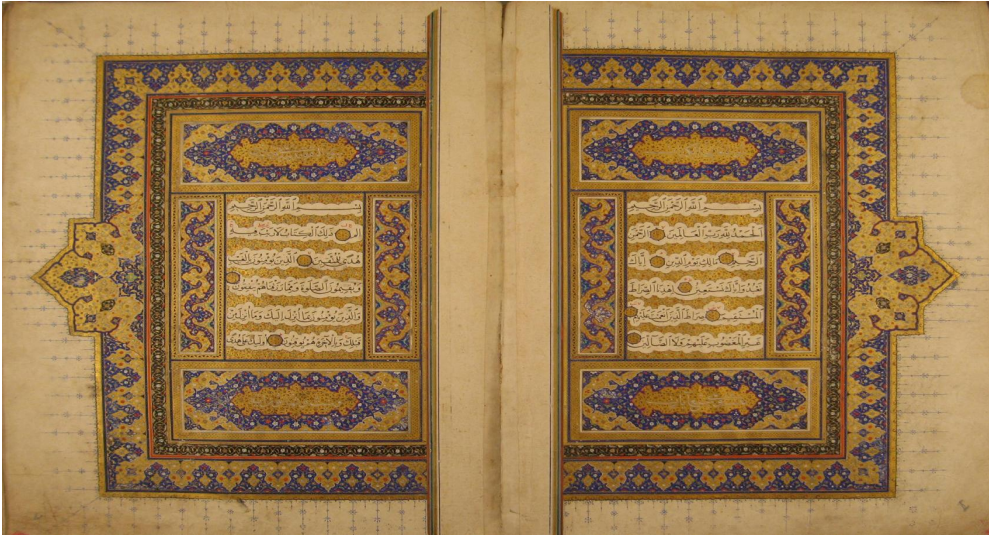 بسم الله الرحمن الرحيم
الحمد لله رب العالمين الرحمن
الرحيم مالك يوم الدين إياك
نعبد وإياك نستعين اهدنا الصراط
المستقيم صراط الذين أنعمت عليهم
غير المغضوب عليهم ولا الضالين
بسم الله الرحمن الرحيم
الم ذلك الكتاب لا ريب فيه
هدى للمتقين الذين يؤمنون بالغيب
ويقيمون الصلوة ومما رزقناهم ينفقون
والذين يؤمنون بما أنزل إليك وما أنزل من
قبلك وبالآخرة هم يوقنون أولئك على هدى